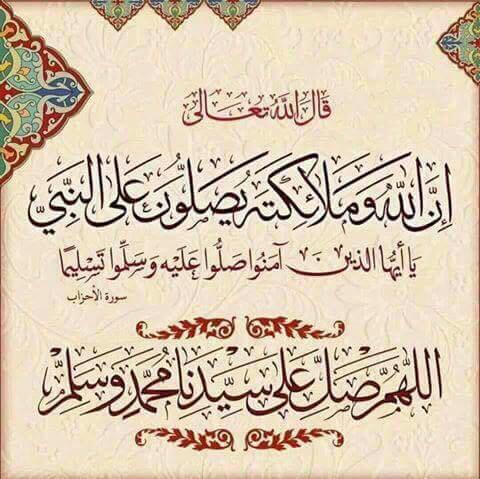 قال الله تعالى
إن الله وملائكته يصلون على النبي
يا أيها الذين آمنوا صلوا عليه وسلموا تسليما
سورة الأحزاب
اللهم صل على سيدنا محمد وسلم